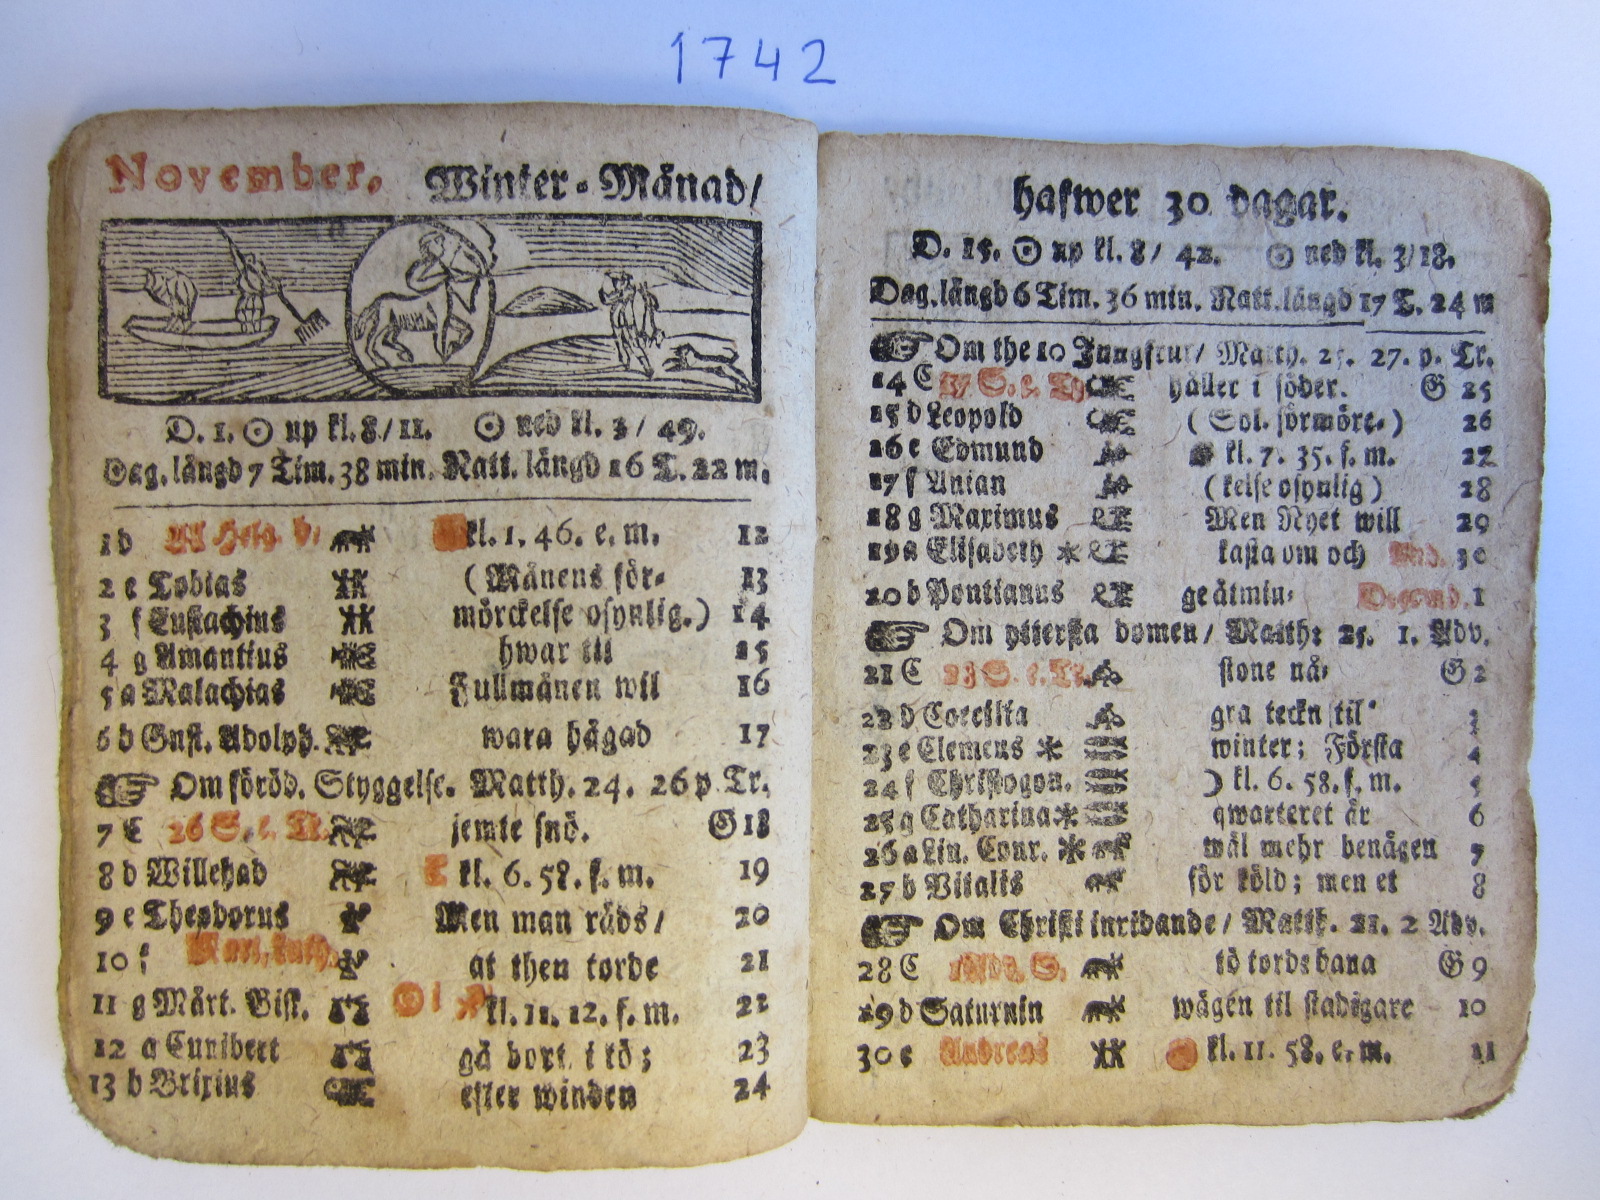 1742
November. Winter-Månad/
D. 1. ☉ up kl. 8/11. ☉ ned kl. 3/49.
Dag. längd 7 Tim. 38 min. Natt. längd 16 T. 22 m.
1 d Al Helg. d. kl. 1. 46. e. m. 12
2 e Tobias (Månens för- 13
3 f Eustachius mörckelse osynlig.) 14
4 g Amantius hwar til 15
5 a Malachias Fullmånen wil 16
6 b Gust. Adolph. wara hågad 17
☞ Om föröd. Styggelse. Matth. 24. 26 p Tr.
7 C 26 S. e. Tr. jemte snö. G 18
8 d Willehad kl. 6. 58. f. m. 19
9 e Theodorus Men man räds/ 20
10 f Mart. Luth. at then torde 21
11 g Mårt. Bisk. kl. 11. 12. f. m. 22
12 a Cunibert gå bort i tö; 23
13 b Brixius efter winden 24
hafwer 30 dagar.
D. 15. ☉ up kl. 8/42. ☉ ned kl. 3/18.
Dag. längd 6 Tim. 36 min. Natt. längd 17 T. 24 m
☞ Om the 10 Jungfrur/ Matth. 25. 27. p. Tr.
14 C 27 S. e. Tr. håller i söder. G 25
15 d Leopold (Sol. förmörc-) 26
16 e Edmund kl. 7. 35. f. m. 27
17 f Anian (kelse osynlig) 28
18 g Maximus Men Nyet will 29
19 a Elisabeth * kasta om och And. 30
20 b Pontianus ge åtmin- Decemb. 1
☞ Om yttersta domen/ Matth: 25. 1. Adv.
21 C 28 S. e. Tr. stone nå- G 2
22 d Coecilia gra teckn til 3
23 e Clemens * winter; Första 4
24 f Chrisogon. ☽ kl. 6. 58. f. m. 5
25 g Catharina * qwarteret är 6
26 a Lin. Conr. * wäl mehr benägen 7
27 b Vitalis för köld; men et 8
☞ Om Christi inridande/ Matth. 21. 2 Adv.
28 C 1 Adv. S. tö torde bana G 9
29 d Saturnin wägen til stadigare 10
30 e Andreas kl. 11. 58. e. m. 11